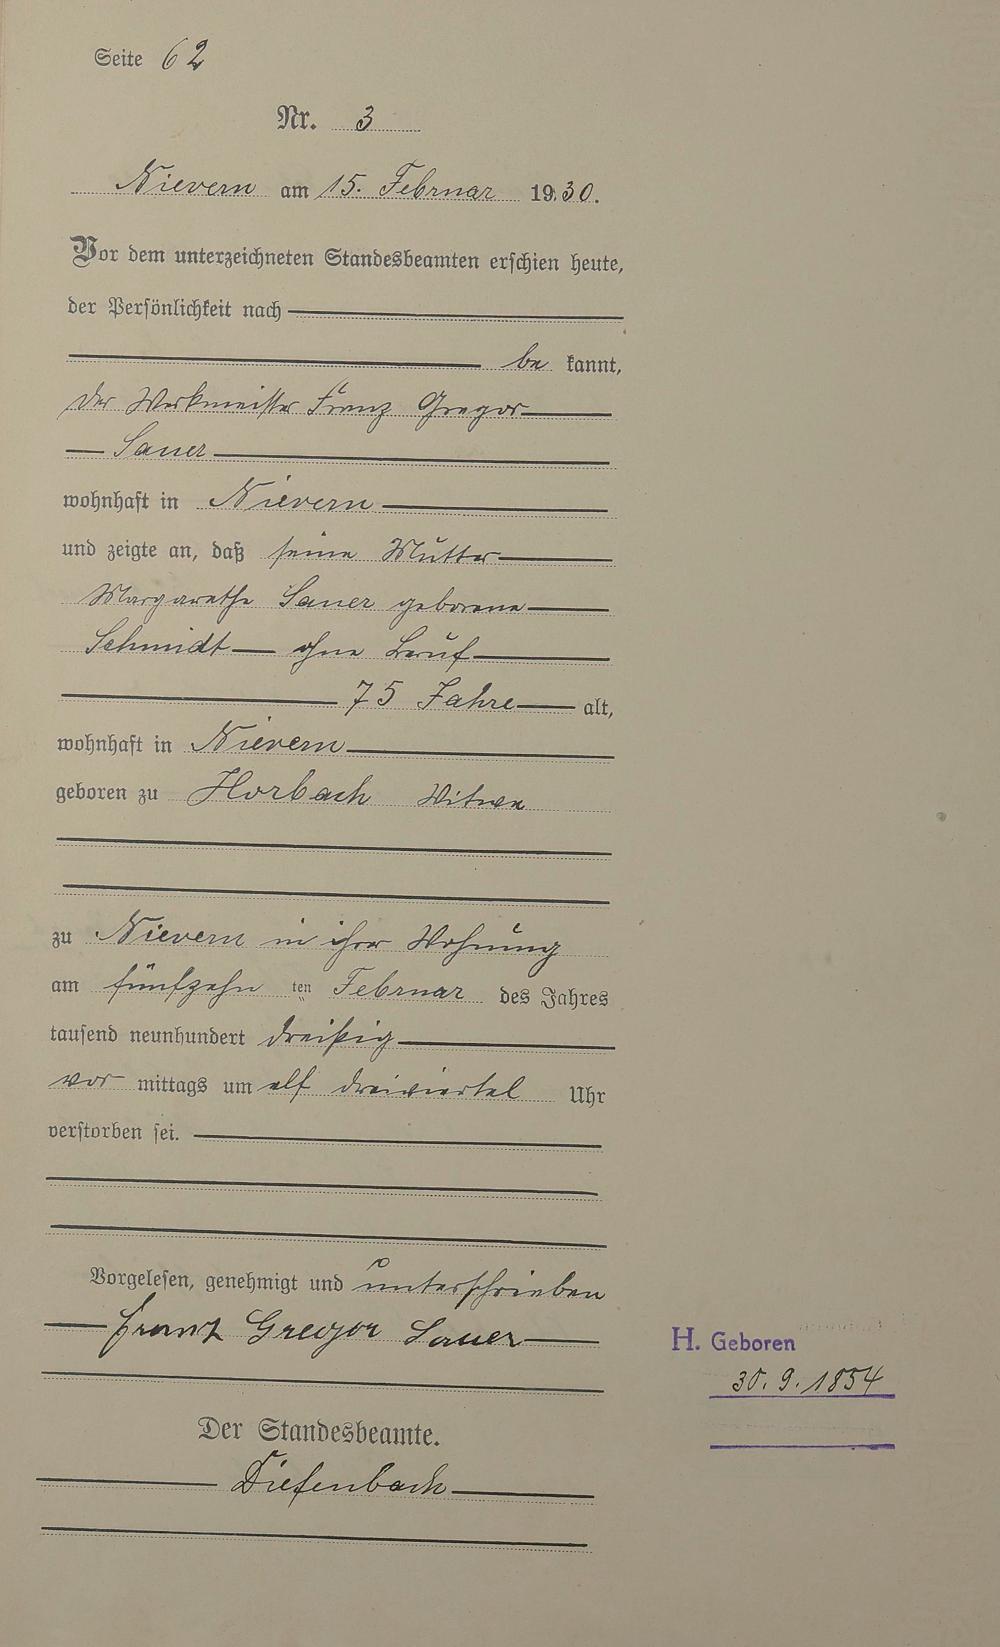 Seite 62
Nr. 3
Nievern am 15. Februar 1930.
Vor dem unterzeichneten Standesbeamten erschien heute,
der Persönlichkeit nach
be kannt,
der Werkmeister Franz Gregor
Sauer
wohnhaft in Nievern
und zeigte an, daß seine Mutter
Margarethe Sauer geborene
Schmidt ohne Beruf
75 Jahre alt,
wohnhaft in Nievern
geboren zu Horbach Witwe
zu Nievern in ihrer Wohnung
am fünfzehn ten Februar des Jahres
tausend neunhundert dreißig
vor mittags um elf dreiviertel Uhr
verstorben sei.
Vorgelesen, genehmigt und unterschrieben
Franz Gregor Sauer
H. Geboren
30. 9. 1854
Der Standesbeamte.
Diefenbach